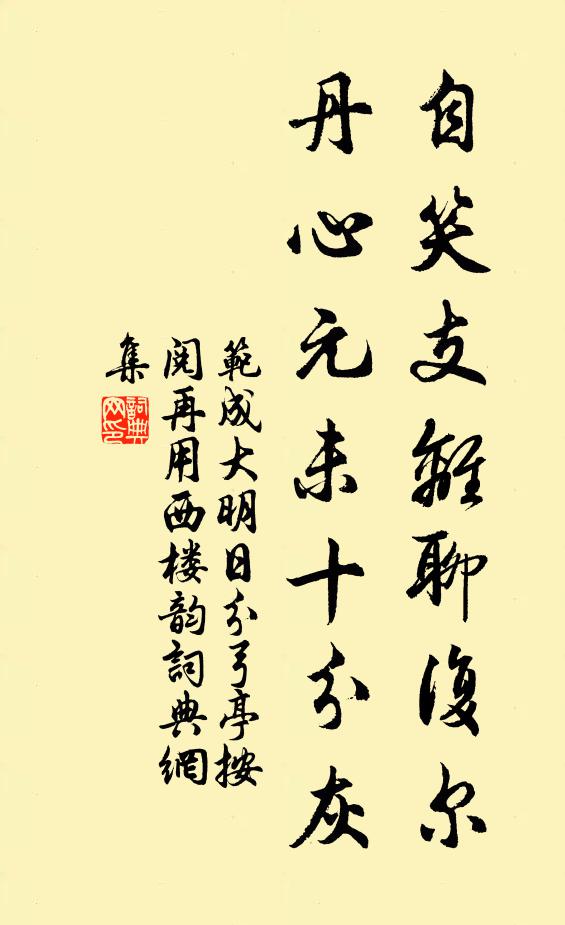 自笑支離聊復尔
丹心元未十分灰
範成大明日分弓亭按
閱再用西楼韵詞典網
集
詞典网印